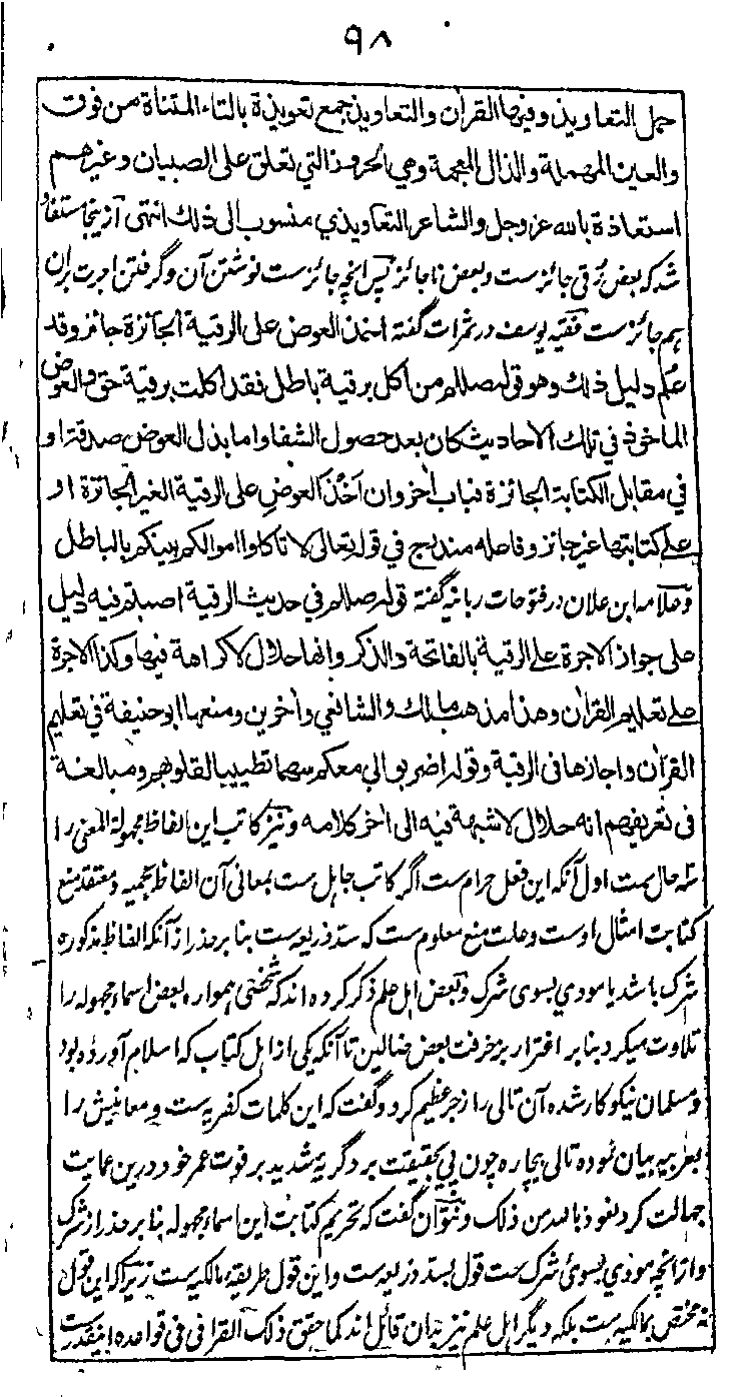 ۹۸
حمل التعاويذ وفيها القران والتعاويذ جمع تعويذة بالتاء المثناة من فوق
والعين المهملة والذال المعجمة وهي الحروز التي تعلق على الصبيان وغيرهم
استعاذة بالله عز وجل والشاعر التعاويذي منسوب الى ذلك انتهى ازينجا مستفاد
شد که بعض رقی جائزست وبعض ناجائز پس انچه جائزست نوشتن آن وگرفتن اجرت بران
هم جائزست فقیه یوسف در ثمرات گفته اخذ العوض على الرقية الجائزة جائز وقد
علم دليل ذلك وهو قوله صللم من اكل برقية باطل فقد اكلت برقية حق والعوض
الماخوذ في تلك الاحاديث كان بعد حصول الشفا واما بذل العوض صدقة او
في مقابل الكتابة الجائزة فباب اخر وان اخذ العوض على الرقية الغير الجائزة او
على كتابتها غير جائز وفاعله مندرج في قوله تعالى لا تاكلوا اموالكم بينكم بالباطل
وعلامه ابن علان در فتوحات ربانیه گفته قوله صللم في حديث الرقية اصبتم فيه دليل
على جواز الاجرة على الرقية بالفاتحة والذكر وانها حلال لا كراهة فيها وكذا الاجرة
على تعليم القران وهذا مذهب مالك والشافعي واخرين ومنعها ابو حنيفة في تعليم
القران واجازها في الرقية وقوله اضربوا لي معكم سهما تطييبا لقلوبهم ومبالغة
في تعريفهم انه حلال لا شبهة فيه الى اخر كلامه ونیز کاتب این الفاظ مجهولة المعنی را
سه حال ست اول آنکه این فعل حرام ست اگر کاتب جاهل ست بمعانی آن الفاظ عجمیه ومعتقد منع
کتابت امثال اوست وعلت منع معلوم ست که سد ذریعه ست بنا بر حذر از آنکه الفاظ مذکوره
شرک باشد یا مودی بسوی شرک وبعض اهل علم ذکر کرده اند که شخصی همواره بعض اسماء مجهوله را
تلاوت میکرد بنا بر اغترار بزخرفت بعض ضالین تا آنکه یکی از اهل کتاب که اسلام آورده بود
ومسلمان نیکوکار شده آن تالی را زجر عظیم کرد وگفت که این کلمات کفریه ست ومعانیش را
بعربیه بیان نموده تالی بیچاره چون پی بحقیقت برد گریه شدید بر فوت عمر خود درین عمایت
جهالت کرد نعوذ بالله من ذلك ونتوان گفت که تحریم کتابت این اسماء مجهوله بنا بر حذر از شرک
واز انچه مودی بسوئ شرک ست قول بسد ذریعه ست واین قول طریقه مالکیه ست زیراکه این قول
نه مختص بمالکیه ست بلکه دیگر اهل علم نیز بدان قائل اند كما حقق ذلك القرافي في قواعده اینقدرست